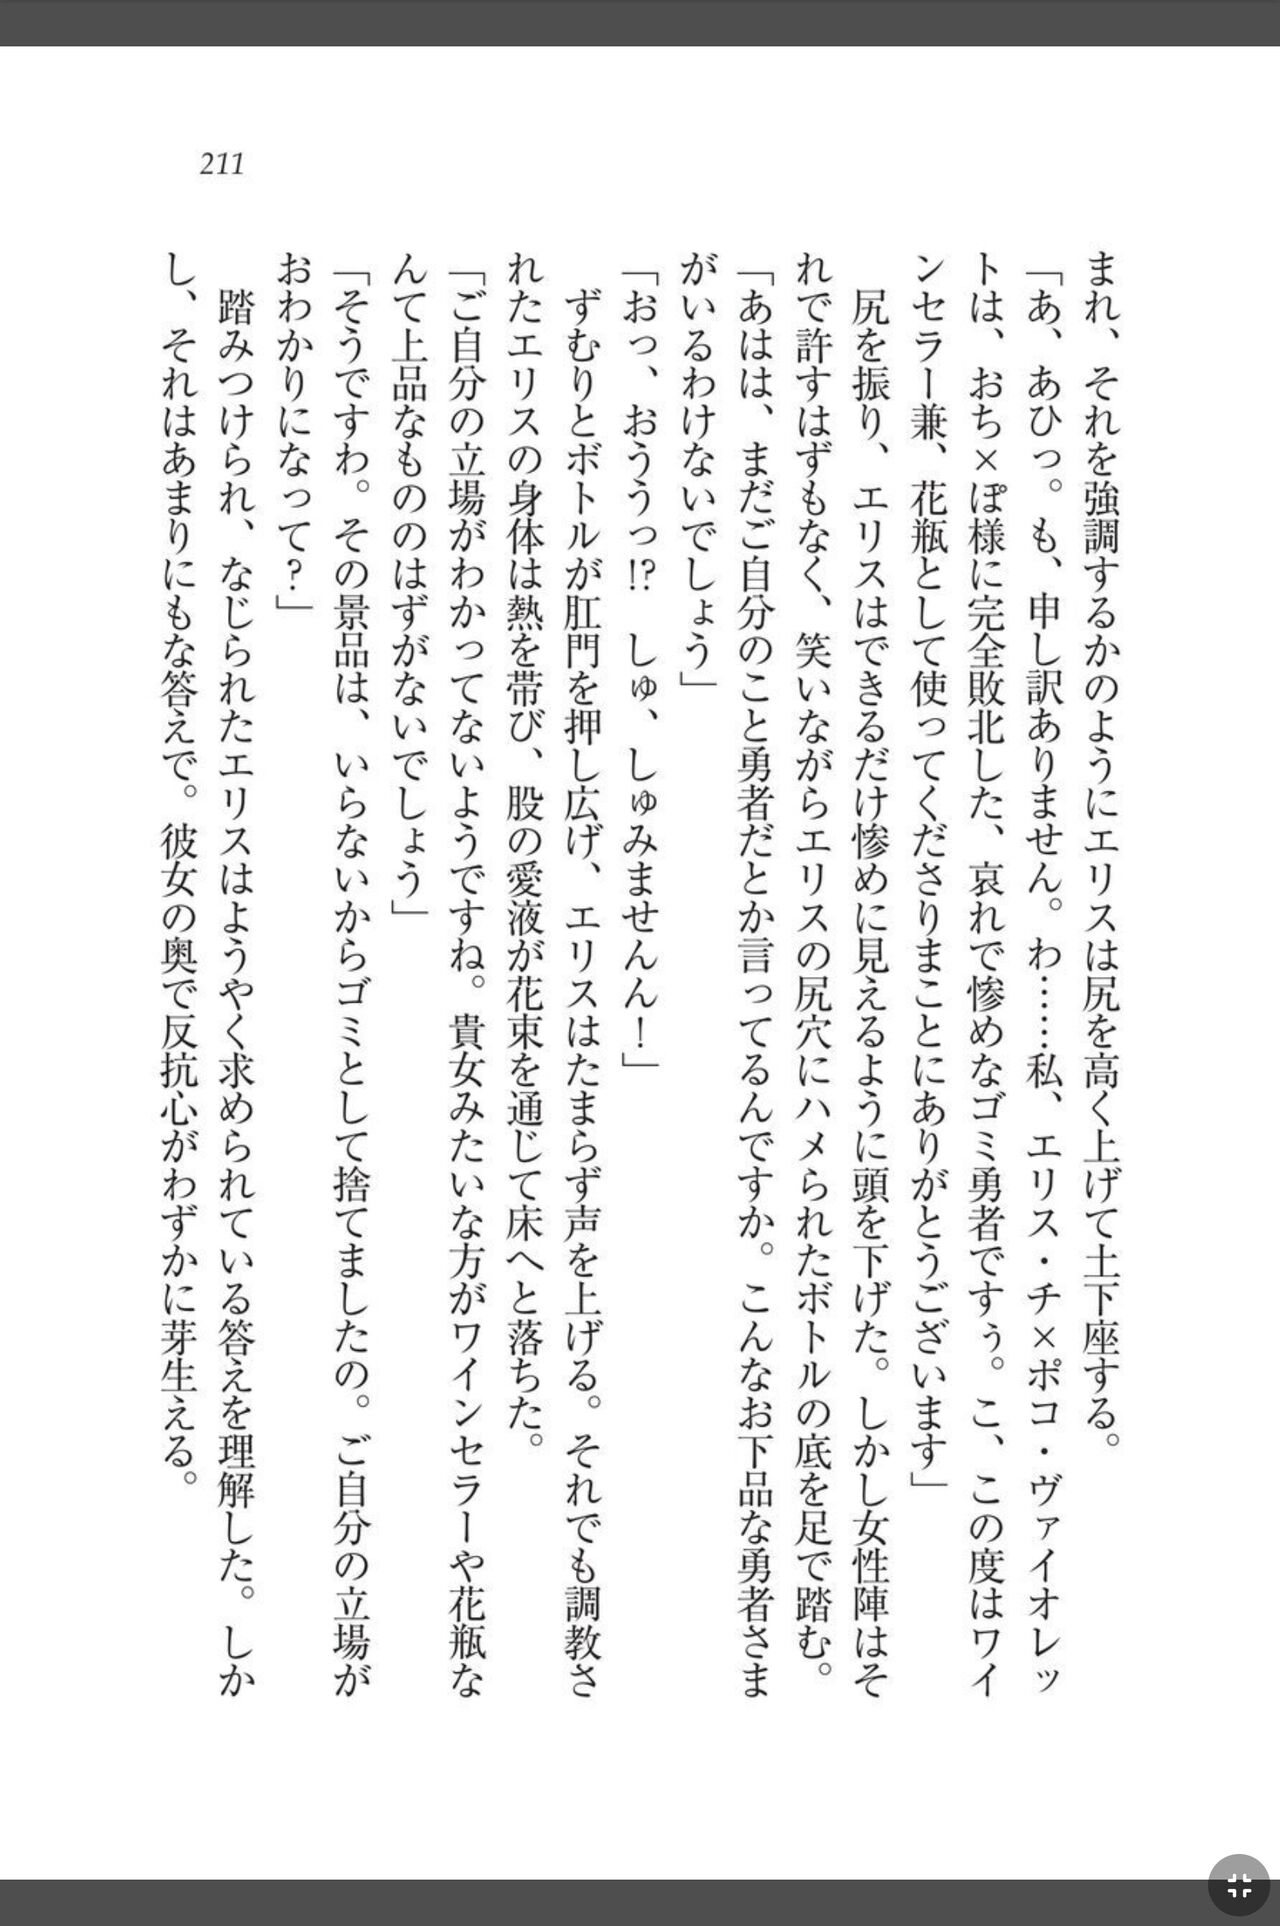 211
まれ、それを強調するかのようにエリスは尻を高く上げて土下座する。
「あ、あひっ。も、申し訳ありません。わ……私、エリス・チ×ポコ・ヴァイオレッ
トは、おち×ぽ様に完全敗北した、哀れで惨めなゴミ勇者ですぅ。こ、この度はワイ
ンセラー兼、花瓶として使ってくださりまことにありがとうございます」
　尻を振り、エリスはできるだけ惨めに見えるように頭を下げた。しかし女性陣はそ
れで許すはずもなく、笑いながらエリスの尻穴にハメられたボトルの底を足で踏む。
「あはは、まだご自分のこと勇者だとか言ってるんですか。こんなお下品な勇者さま
がいるわけないでしょう」
「おっ、おううっ!?　しゅ、しゅみませんん！」
　ずむりとボトルが肛門を押し広げ、エリスはたまらず声を上げる。それでも調教さ
れたエリスの身体は熱を帯び、股の愛液が花束を通じて床へと落ちた。
「ご自分の立場がわかってないようですね。貴女みたいな方がワインセラーや花瓶な
んて上品なもののはずがないでしょう」
「そうですわ。その景品は、いらないからゴミとして捨てましたの。ご自分の立場が
おわかりになって？」
　踏みつけられ、なじられたエリスはようやく求められている答えを理解した。しか
し、それはあまりにもな答えで。彼女の奥で反抗心がわずかに芽生える。